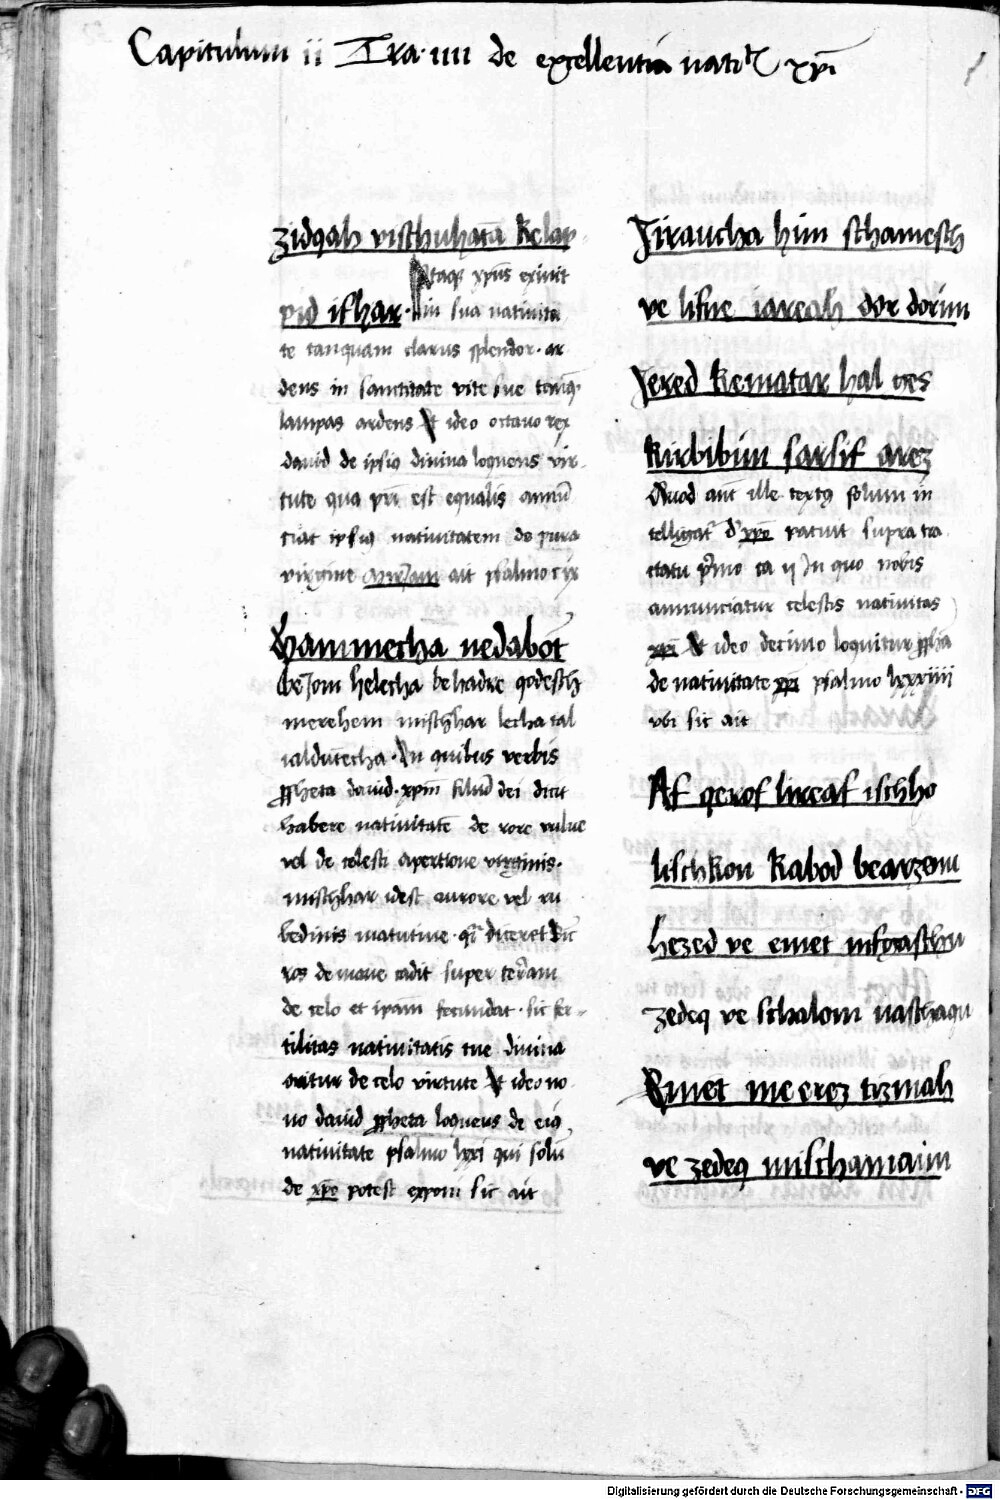 Capitulum ii Tra. iiii de excellentia natitͭ xpi
zidqah vischuhatā kelap-
Itaqꝫ xpūs exiuit
pid ishar. in sua natiuita
te tanquam clarus splendor. ar
dens in sanctitate vite sue
lampas ardens Et ideo octauo rex
dauid de ipsiꝰ diuina loquens vir-
tute qua pri est equalis annū
ciat ipsiꝰ natiuitatem de pura
virgine ait psalmo cix
hammecha nedabot
beJom helecha behadre qodesch
merehem mischhar lecha tal
ialdutecha. In quibus verbis
ꝓpheta dauid. xpm filiū dei dicit
habere natiuitatē de rore vulue
vel de celesti apertione virginis.
mischhar idest aurore vel ru
bedinis matutine. diceret Sic
ros de mane cadit super terram
de celo et ipam fecundat. sic fer-
tilitas natiuitatis tue diuina
oritur de celo virtute Et ideo no
no dauid ꝓpheta loquens de eiꝰ
natiuitate psalmo lxxi qui solū
de xpo potest exponi sic ait
Jiraucha him schamesch
ve lifne iareah dor dorim
Jered kematar hal ges
kirbibim sarsif arez
Quod aut ille textꝰ solum in
telligat' d' xpo patuit supra tra
ctatu primo ca ij In quo nobis
annunciatur celestis natiuitas
xpi Et ideo decimo loquitur ꝓpha
de natiuitate xpi psalmo lxxxiiii
vbi sic ait
Af qerof lireaf ischho
lischkon kabod bearzenu
hezed ve emet nifgaschu
zedeq ve schalom naschaqu
Emet me erez tizmah
ve zedeq mischamaim
Digitalisierung gefördert durch die Deutsche Forschungsgemeinschaft - DFG